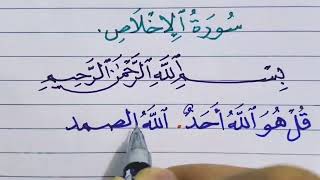 سُورَةُ ٱلْإِخْلَاصِ.
بِسْمِ ٱللَّهِ ٱلرَّحْمَٰنِ ٱلرَّحِيمِ
قُلْ هُوَ ٱللَّهُ أَحَدٌ. ٱللَّهُ الصمد